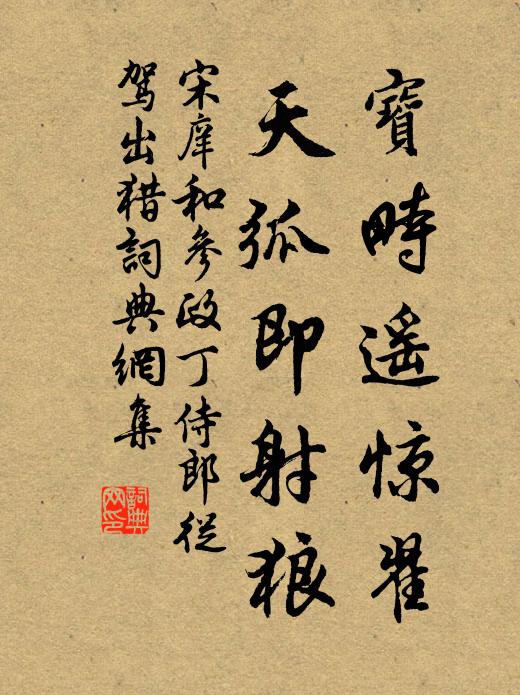 寶畤遥惊翟
天弧即射狼
宋庠和參政丁侍郎從
駕出猎詞典網集
詞典网印